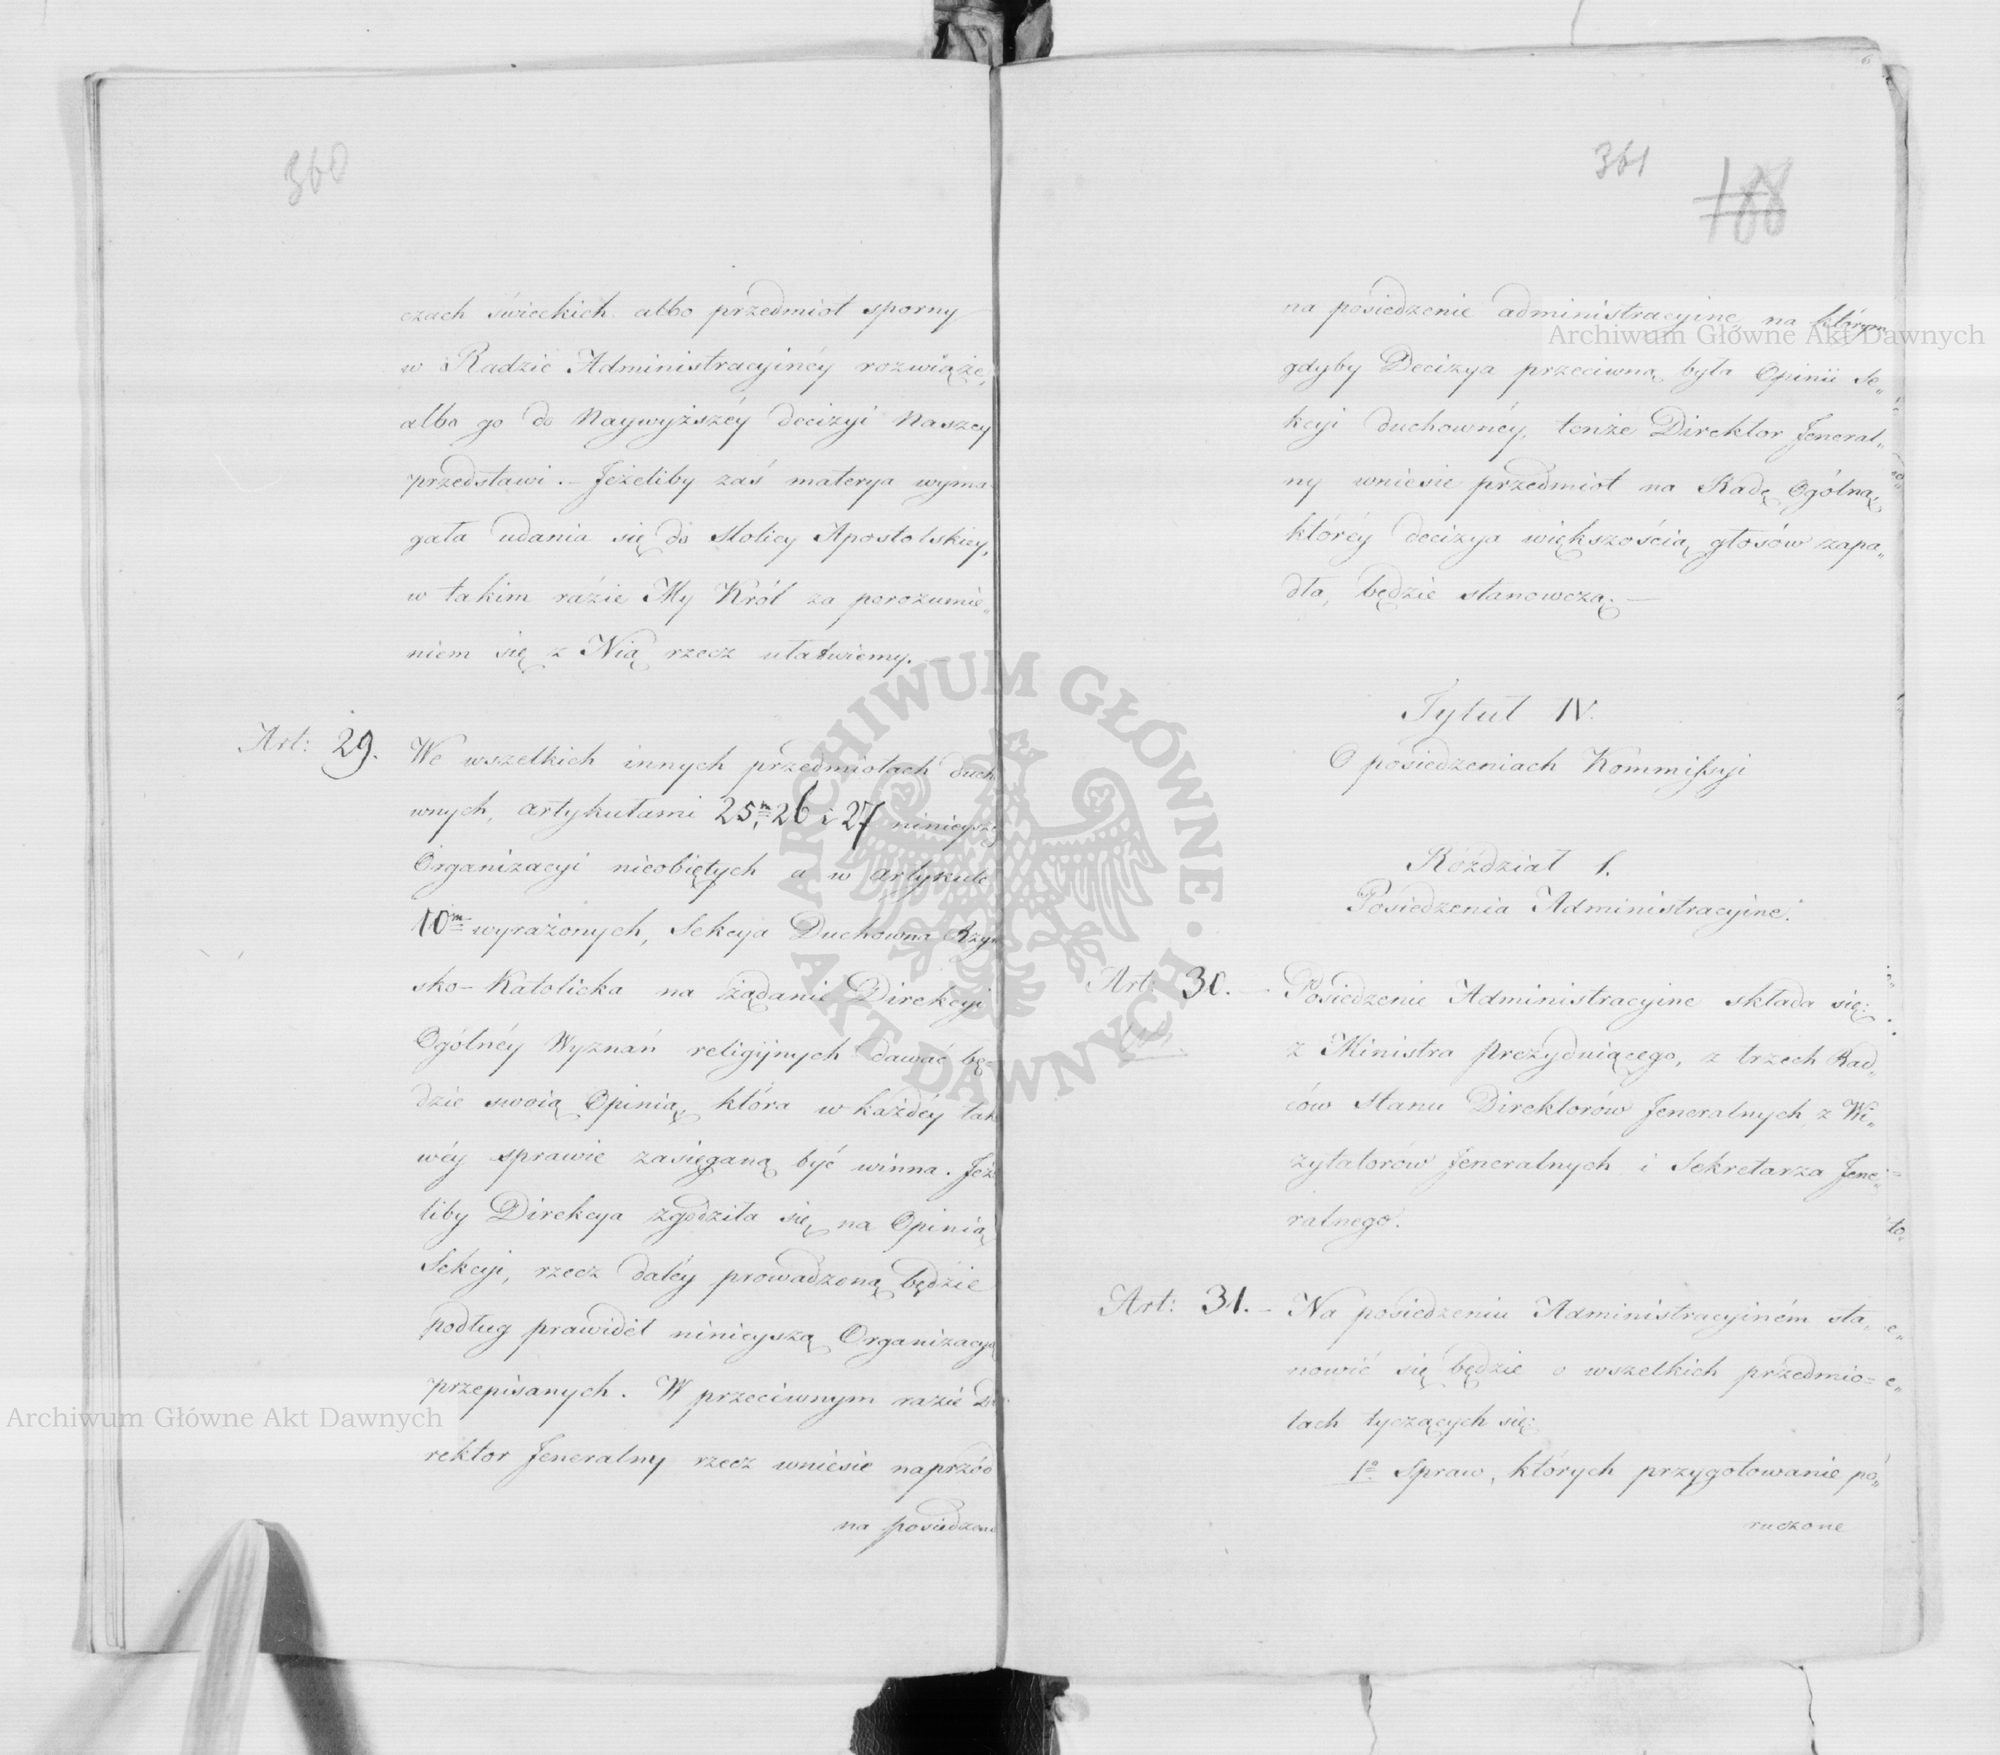 360
czach świeckich albo przedmiot sporny
w Radzie Administracyinéy rozwiąże,
albo go do Naywyższéy decizyi Naszey
przedstawi. – Jeżeliby zaś materya wyma
gała udania się do Stolicy Apostolskiey,
w takim rázie My Król za porozumie„
niem się z Nią rzecz ułatwiemy. –
Art: 29. We wszelkich innych przedmiotach duch
wnych, artykułami 25.m 26 i 27 ninieysze
Organizacyi nieobiętych a w artykule
10m wyrażonych, Sekcya Duchowna Rzy
sko-Katolicka na żądanie Direkcyi
Ogólnéy Wyznań religijnych dawać bę=
dzie swoią Opinią, która w każdéy tak
wéy sprawie zasięganą być winna. Jeże
liby Direkcya zgodziła się na Opinią
Sekcyi, rzecz daléy prowadzoną będzie
podług prawideł ninieyszą Organizacyą
przepisanych. W przeciwnym razie Di
rektor Jeneralny rzecz wniesie naprzód
na posiedzeni
361
188
na posiedzenie administracyine, na którym
gdyby Decizya przeciwną była Opinii Se„
kcyi duchownéy, tenże Direktor Jeneral„
ny wniesie przedmiot na Radę Ogólną,
któréy decizya większością głosów zapa„
dła, będzie stanowczą. —
Tytuł IV.
O posiedzeniach Kommissyi
Rózdział 1.
Posiedzenia Administracyine.
Art: 30. – Posiedzenie Administracyine składa się:
z Ministra prezyduiącego, z trzech Rad„
ców Stanu Direktorów Jeneralnych, z Wi„
zytatorów Jeneralnych i Sekretarza Jene„
ralnego.
Art: 31. – Na posiedzeniu Administracyiném sta„
nowić się będzie o wszelkich przedmio=
tach tyczących się:
1o Spraw, których przygotowanie po„
ruczone
Archiwum Główne Akt Dawnych
Archiwum Główne Akt Dawnych
ARCHIWUM GŁÓWNE • AKT DAWNYCH •